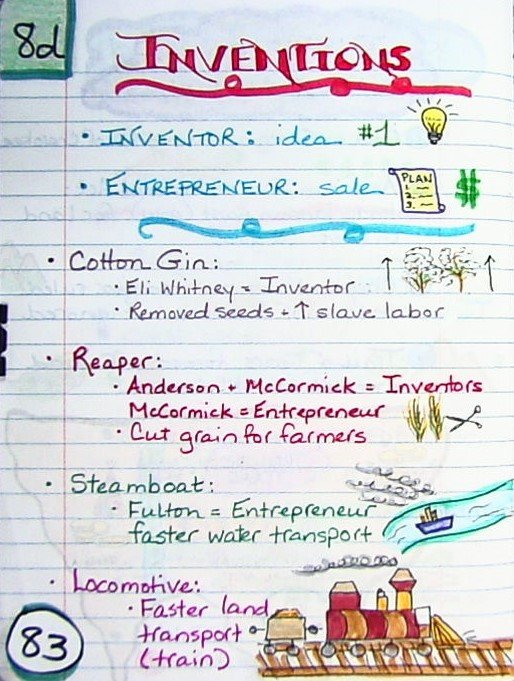 8d
INVENTIONS
• INVENTOR: idea #1
• ENTREPRENEUR: sale $
PLAN
1.
2.
3.
• Cotton Gin:
• Eli Whitney = Inventor
• Removed seeds + ↑ slave labor
• Reaper:
• Anderson + McCormick = Inventors
McCormick = Entrepreneur
• Cut grain for farmers
• Steamboat:
• Fulton = Entrepreneur
faster water transport
• Locomotive:
• Faster land
transport
(train)
83